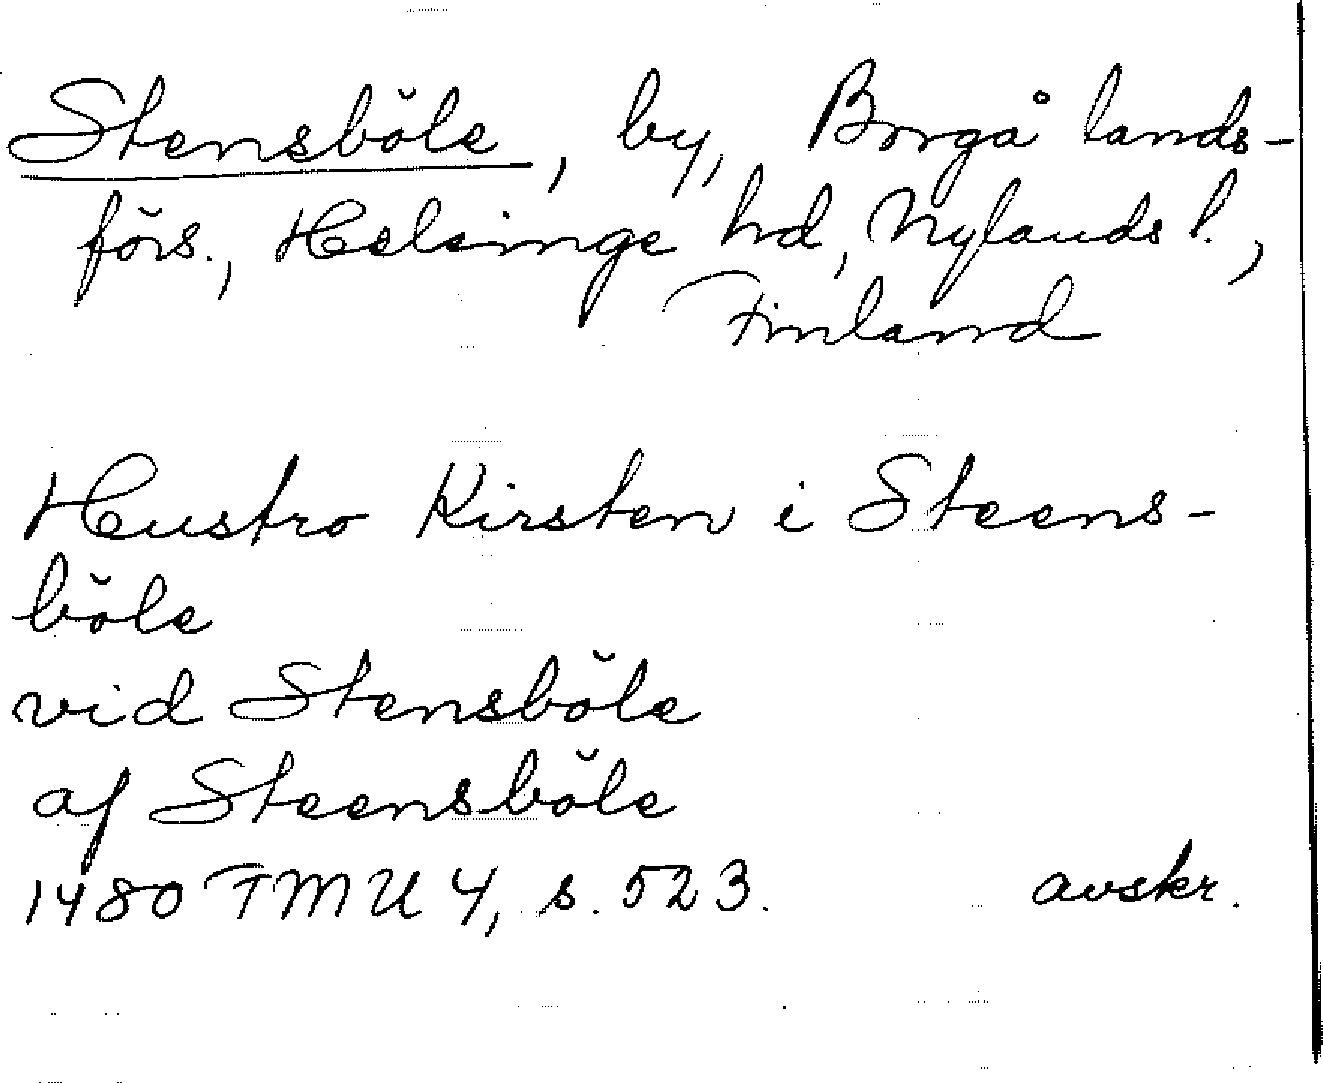 Stensböle, by, Borgå lands-
förs., Helsinge hd, Nylands l.,
Finland
Hustro Kirsten i Steens-
böle
vid Stensböle
af Steensböle
1480 FMU 4, s. 523. avskr.